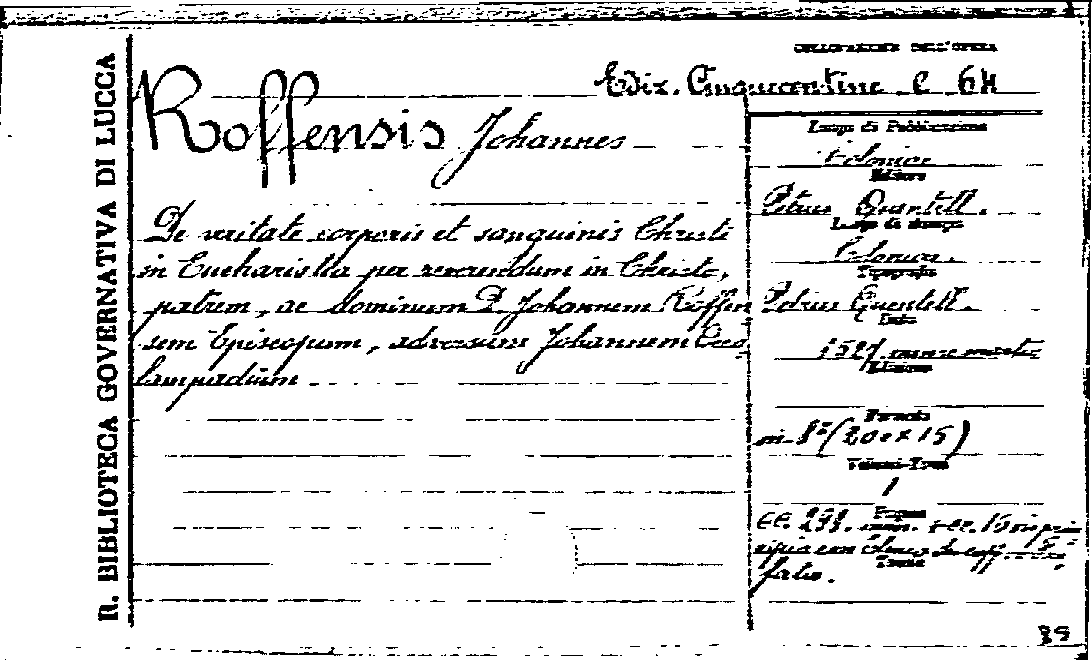 R. BIBLIOTECA GOVERNATIVA DI LUCCA
COLLOCAZIONE DELL'OPERA
Ediz. Cinquecentine C 64
Roffensis Johannes
De veritate corporis et sanguinis Christi
in Eucharistia per reverendum in Christo,
patrem, ac dominum D. Johannem Roffen
sem Episcopum, adversum Johannem Oeco
lampadium
Luogo di Pubblicazione
Coloniae
Editore
Petrus Quentell.
Luogo di stampa
Coloniae.
Tipografia
Petrus Quentell.
Data
1527 mense martio
Edizione
Formato
in 8° (20 x 15)
Volumi-Tomi
1
Pagine
cc. num. + cc. 16 in prin
cipio cum
Tavole
fatio.